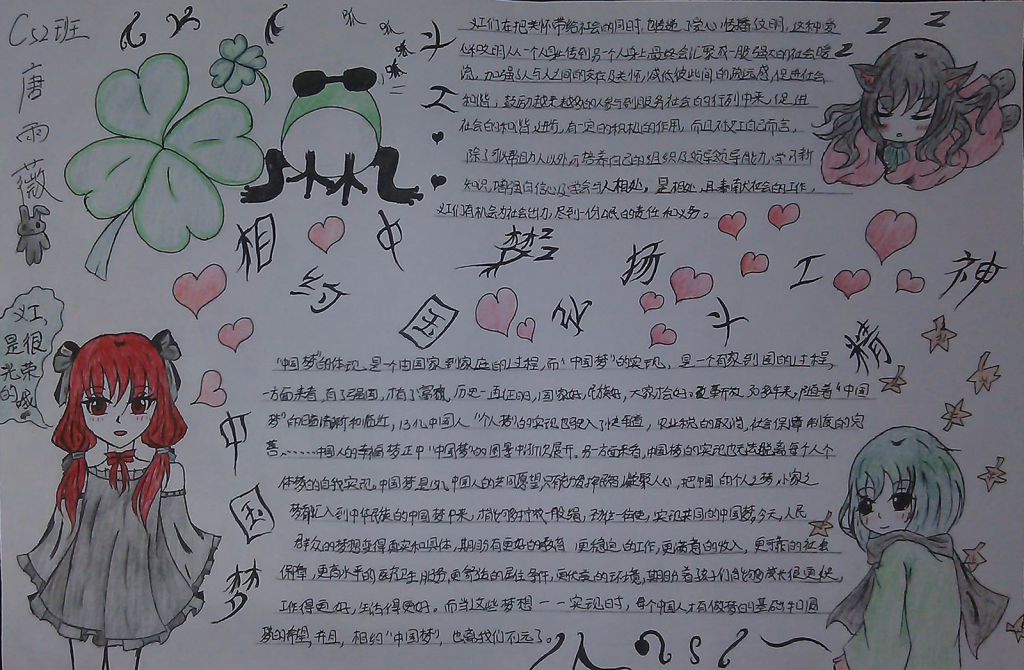 C52班
唐
雨
薇
呱
呱
呱
呱
义工
义工们在把关怀带给社会的同时,也传递了爱心,传播文明,这种爱
心和文明从一个人身上传到另一个人身上,最终会汇聚成一股强大的社会暖
流。加强人与人之间的交往及关怀,减低彼此间的疏远感,促进社会
和谐,鼓励越来越多的人参与到服务社会的行列中来,促进
社会的和谐进步,有一定的积极的作用。而且对义工自己而言,
除了
知识,增强自信心及学会与人相处,
义工们有机会为社会出力,尽到一份公民的责任和义务。
z
z
z
相
约
中
国
梦
zz
弘
扬
义
工
精
神
义工
是很
光荣
的哦
中
国
梦
"中国梦"的体现,是一个由国家到家庭的过程,而"中国梦"的实现,是一个有家到国的过程,
一方面来看,有了强国,才有了富裕,历史一直证明,国家好,民族好,大家才会好。改革开放30多年来,随着"中国
梦"的日益清晰和临近,13亿中国人"个人梦"的实现也驶入了快车道,农业税的取消,社会保障制度的完
善,……中国人的幸福梦正中"中国梦"的图景中渐次展开。另一方面来看,中国梦的实现也无法脱离每个人个
体梦的自我实现。中国梦是13亿中国人的共同愿望,只有
梦都汇入到中华民族的中国梦中来,才能
群众的梦想变得真实和具体,期盼有更好的教育 更稳定的工作,更满意的收入,更可靠的社会
保障,更高水平的医疗卫生服务,更舒适的居住条件,更优美的环境,期盼着孩子们能够成长得更好,
工作得更好,生活得更好。而当这些梦想一一实现时,每个中国人才有做梦的基础和圆
梦的希望,并且,相约"中国梦",也离我们不远了。